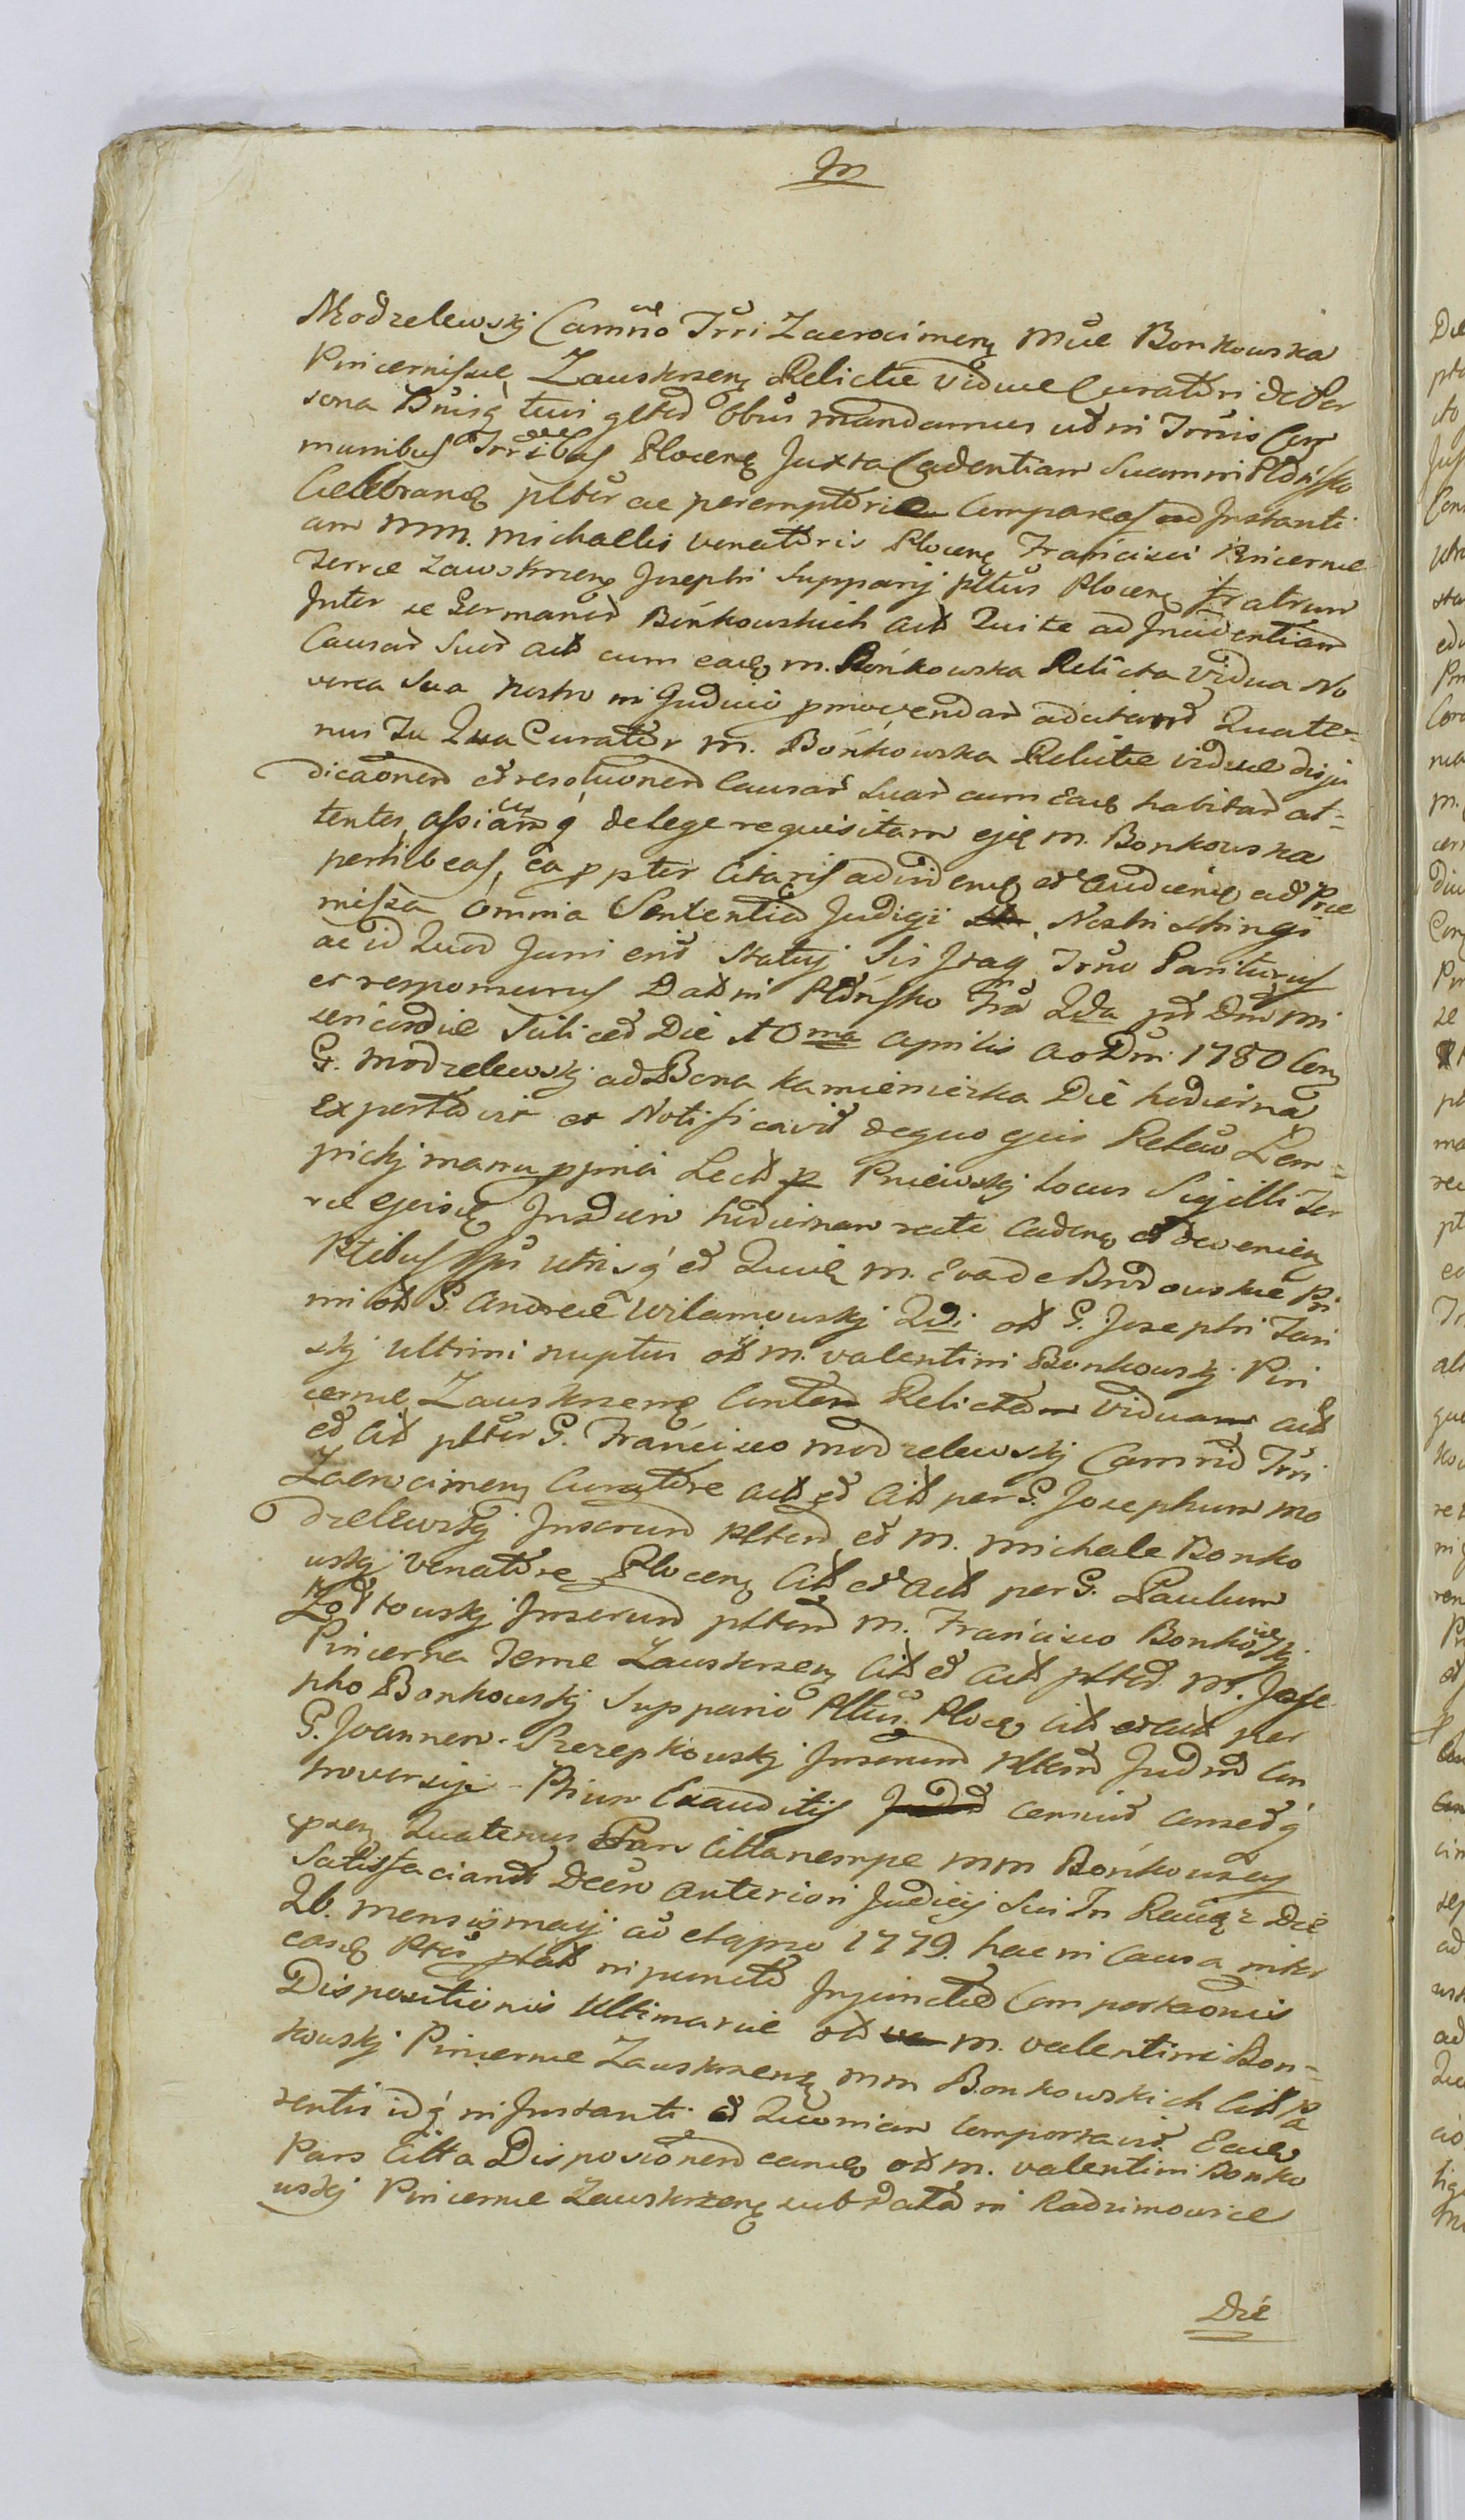 M
Modrzelewskj Camño Trri Zacrocimeñ Mllae Bonkowska
Pincernissae Zauskrzeñ Relictae viduae Curatori de Per
sona Bnisq tuis gltd obus mandamus ut in Trnis Com
munibus Trrdibus Plocenę Juxta Cadentiam Suam in Płońsko
Celebranđ pltr ac peremptorie Compareas ad Instanti
am MM. Michaelis venatoris Plocenę Francisci Pincernae
Terrae Zawskrzenę Josephi Supparij Pltus Plocenę Fratrum
Inter se Germanor Bońkowskich act Qui te ad Incidentiam
Causae Suae act cum eadę M. Bońkowska Relicta Vidua No
verca Sua nostro in Judicio pmovendae adcitant Quate=
nus Tu Qua Curator M. Bońkowska Relictae viduae disju
dicaonem et resoluonem Causae Suae cum Eadę habitae at=
tentes, assiamq de lege requisitam eję M. Bonkowska
perhibeas, ea ppter Citaris ad vidend et audiend ad Prae
missa omnia Sententia Judicij Nostri stringi
ac id Quod Juris erit statuj Sis Itaq Trno Pariturus
et responsurus Dat in Płońsko Fra 2da pt Dnm Mi
sericordiae Scilicet Die 10ma Aprilis Ao Dni 1780 Cop
G. Modzelewskj ad Bona Kamienierka Die hodierna
exportavit et Notificavit de quo ejus Relaõ Lem=
pickj manu ppria Lect p Pniewskj Locus Sigilli Ter
rae ejusdę In diem hodiernam recte Cadenę et devenienę
Ptibus ipsis utrisq et Quidę M. Eva de Brodowskie Pri
mi ot G. Andreae Wilamowskj 2di ot G. Josephi Jasi
skj Ultimi nuptus ot M. valentini Bonkowskj Pin
cernae Zauskrzenę Consten Relictam Viduam act
et Cit pltr G. Francisco Modzelewskj Camrio Trri
Zacrocimenę Curatore act et Cit per G. Josephum Mo
dzelewskj Inserund pltend et M. Michaele Bonko
wskj venatore Plocenę Cit et act per G. Paulum
Zołtowskj Inserund pltend M. Francisco Bonkowskj
Pincerna Terrae Zauskrzenę Cit et act pltd M. Jose
pho Bonkowskj Suppario Pltus Plocę Cit et act per
G. Joannem Szczepkowskj Inserund pltend Jud md Con
troversijs Ptium Exauditis cernit censetq
pzen Quatenus Pars Citta nempe MM Bońkowscy
Satisfaciendo Decro anteriori Judicij Sui In Racię 2 Die
26. Mensis Maij ao etapso 1779. hac in Causa inter
easdę Ptes ptat in puncto Injunctae Comportaonis
Dispositionis Ultimariae ot M. valentini Bon=
kowskj Pincernae Zauskrzenę MM Bonkowskich Cit Pa
rentis idq in Instanti et Quoniam Comportavit Eadę
Pars Citta Disposionem eandę ot M. valentini Bonko
wskj Pincernae Zauskrzenę sub data in Radzimowice
Die